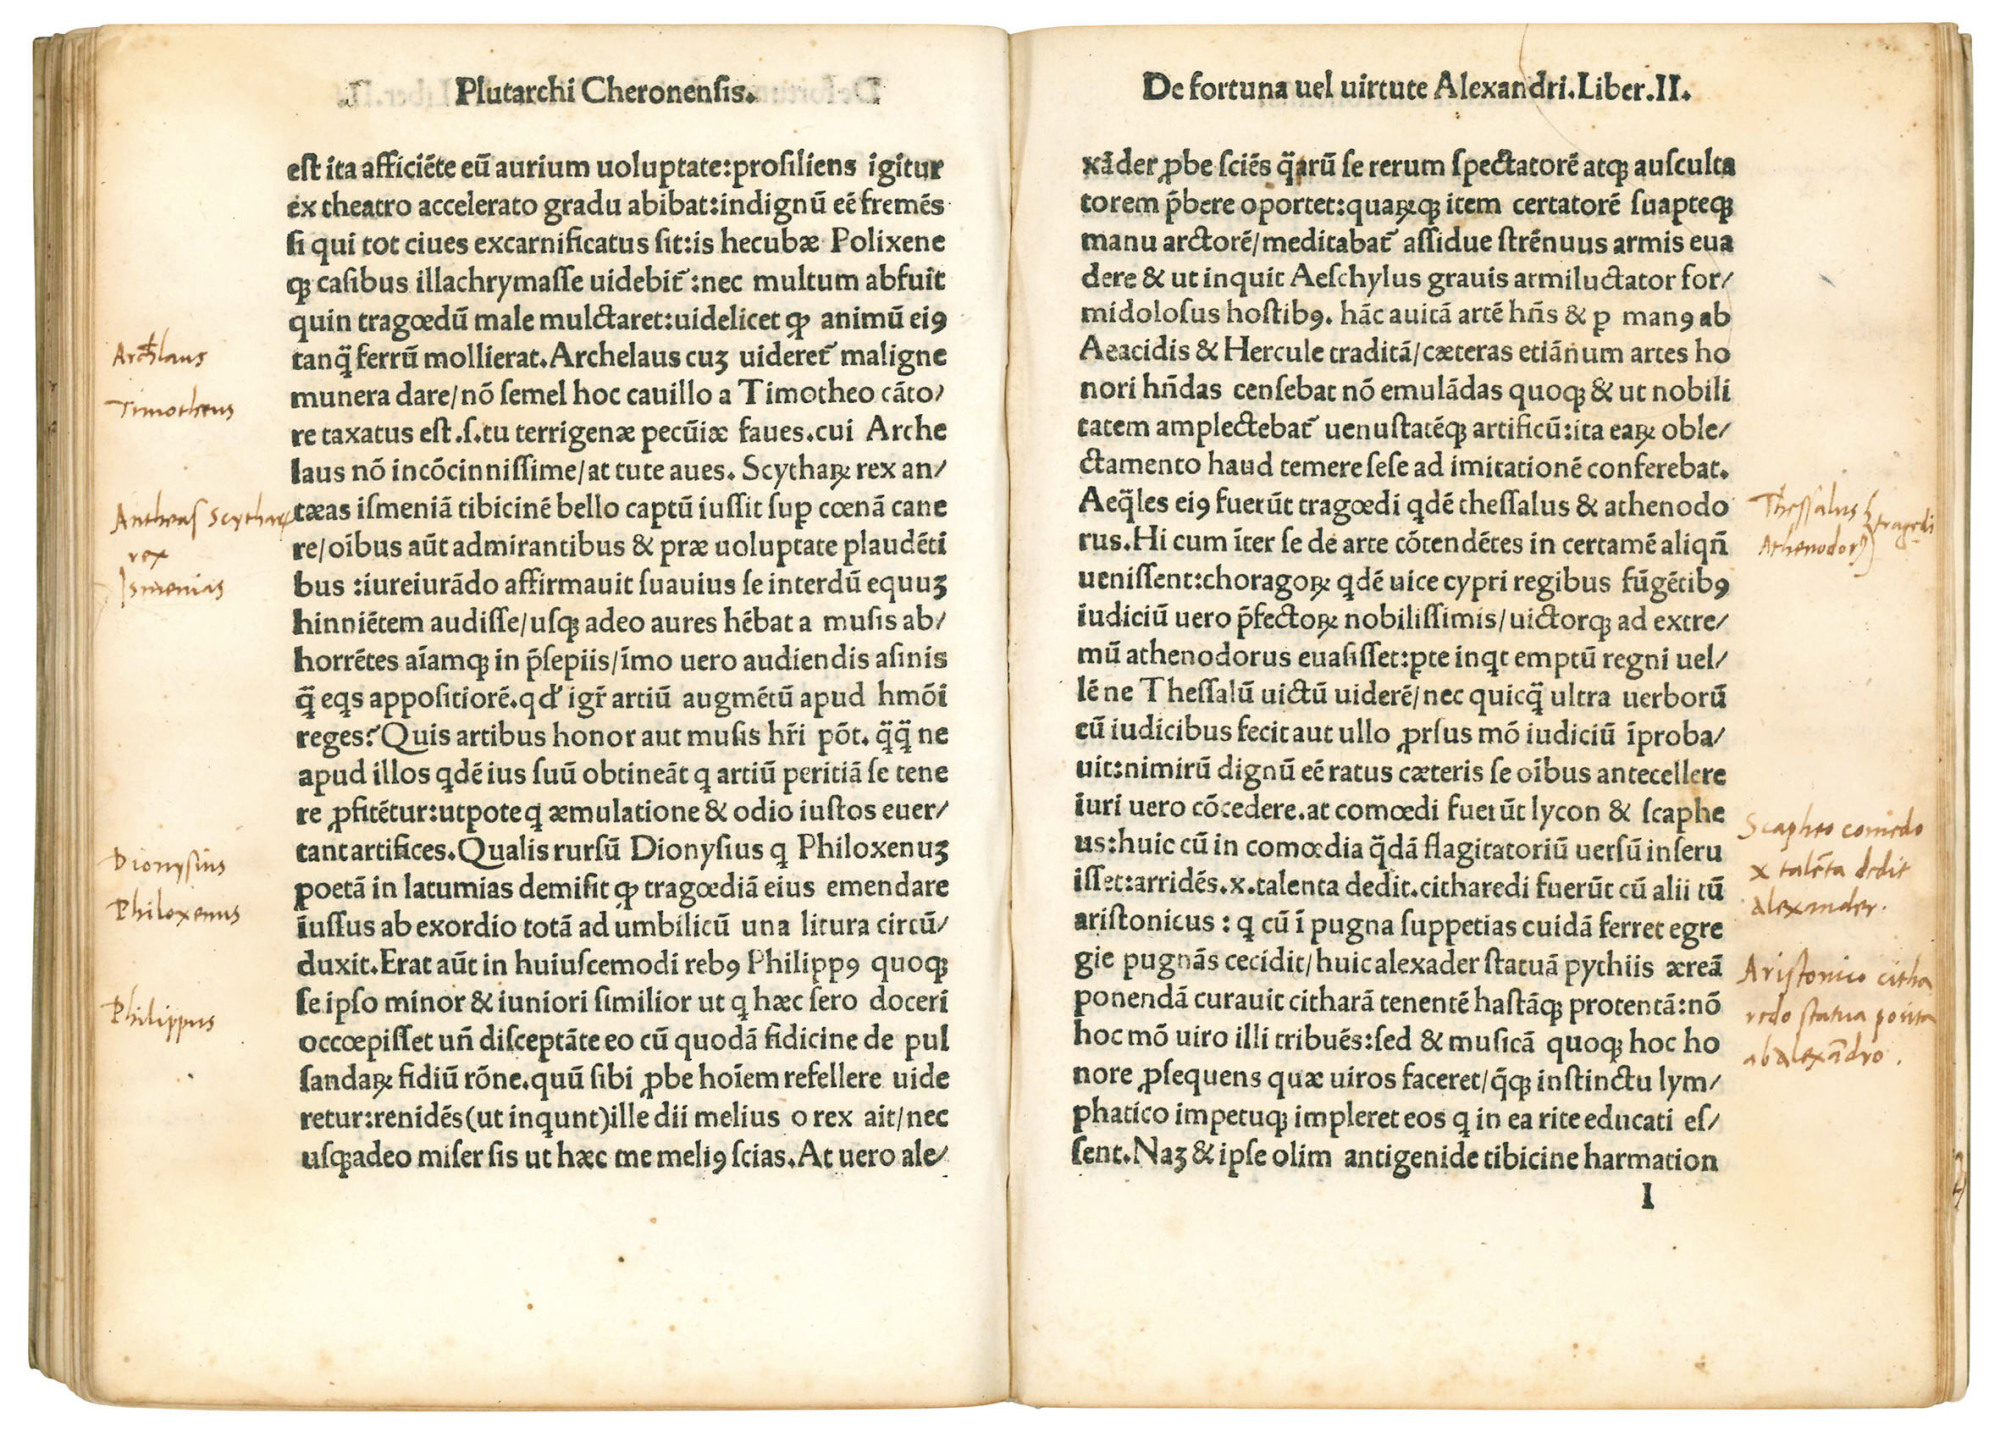 Plutarchi Cheronensis.
est ita afficiēte eū aurium uoluptate:prosiliens igitur
ex theatro accelerato gradu abibat:indignū eē fremēs
si qui tot ciues excarnificatus sit:is hecubæ Polixene
qꝫ casibus illachrymasse uidebit᷑:nec multum abfuit
quin tragœdū male mulctaret:uidelicet qꝫ animū eiꝯ
tanq̄ ferrū mollierat.Archelaus cuꝫ uideret᷑ maligne
munera dare/nō semel hoc cauillo a Timotheo cāto/
re taxatus est.s.tu terrigenæ pecūiæ faues.cui Arche
laus nō incōcinnissime/at tute aues. Scythaꝝ rex an/
tæas ismeniā tibicinē bello captū iussit sup cœnā cane
re/oībus aūt admirantibus & præ uoluptate plaudēti
bus :iureiurādo affirmauit suauius se interdū equuꝫ
hinniētem audisse/usqꝫ adeo aures hēbat a musis ab/
horrētes aīamqꝫ in p̄sepiis/īmo uero audiendis asinis
q̄ eqs appositiorē.qd' igr̄ artiū augmētū apud hmōi
reges?Quis artibus honor aut musis hr̄i pōt. q̄q̄ ne
apud illos qdē ius suū obtineāt q artiū peritiā se tene
re ꝓfitētur:utpote q æmulatione & odio iustos euer/
tant artifices.Qualis rursū Dionysius q Philoxenuꝫ
poetā in latumias demisit qꝫ tragœdiā eius emendare
iussus ab exordio totā ad umbilicū una litura circū/
duxit.Erat aūt in huiuscemodi rebꝯ Philippꝯ quoqꝫ
se ipso minor & iuniori similior ut q hæc sero doceri
occœpisset un̄ disceptāte eo cū quodā fidicine de pul
sandaꝝ fidiū rōne.quū sibi ꝓbe hoīem refellere uide
retur:renidēs(ut inqunt)ille dii melius o rex ait/nec
usqꝫadeo miser sis ut hæc me meliꝯ scias.At uero ale/
Archelaus
Timotheus
Antheas Scythaꝝ
rex
Ismenias
Dionysius
Philoxenus
Philippus
De fortuna uel uirtute Alexandri.Liber.II.
xāder ꝓbe sciēs q̄arū se rerum spectatorē atqꝫ ausculta
torem p̄bere oportet:quaꝝqꝫ item certatorē suapteqꝫ
manu arctorē/meditabat᷑ assidue strēnuus armis eua
dere & ut inquit Aeschylus grauis armiluctator for/
midolosus hostibꝯ. hāc auitā artē hn̄s & ꝑ manꝯ ab
Aeacidis & Hercule traditā/cæteras etiānum artes ho
nori hn̄das censebat nō emulādas quoqꝫ & ut nobili
tatem amplectebat᷑ uenustatēqꝫ artificū:ita eaꝝ oble/
ctamento haud temere sese ad imitationē conferebat.
Aeq̄les eiꝯ fuerūt tragœdi qdē thessalus & athenodo
rus.Hi cum īter se de arte cōtendētes in certamē aliqn̄
uenissent:choragoꝝ qdē uice cypri regibus fūgētibꝯ
iudiciū uero p̄fectoꝝ nobilissimis/uictorqꝫ ad extre/
mū athenodorus euasisset:pte inqt emptū regni uel/
lē ne Thessalū uictū uiderē/nec quicq̄ ultra uerborū
cū iudicibus fecit aut ullo ꝓrsus mō iudiciū īproba/
uit:nimirū dignū eē ratus cæteris se oībus antecellere
iuri uero cōcedere.at comœdi fuerūt lycon & scaphe
us:huic cū in comœdia q̄dā flagitatoriū uersū inseru
isset:arridēs.x.talenta dedit.citharedi fuerūt cū alii tū
aristonicus : q cū ī pugna suppetias cuidā ferret egre
gie pugnās cecidit/huic alexader statuā pythiis æreā
ponendā curauit citharā tenentē hastāqꝫ protentā:nō
hoc mō uiro illi tribuēs:sed & musicā quoqꝫ hoc ho
nore ꝓsequens quæ uiros faceret/q̄qꝫ instinctu lym/
phatico impetuqꝫ impleret eos q in ea rite educati es/
sent.Naꝫ & ipse olim antigenide tibicine harmation
I
Thessalus
Athenodorꝯ
tragedi
Scapheo comedo
x talēta dedit
alexander.
Aristonico citha
redo statua posita
ab alexādro.